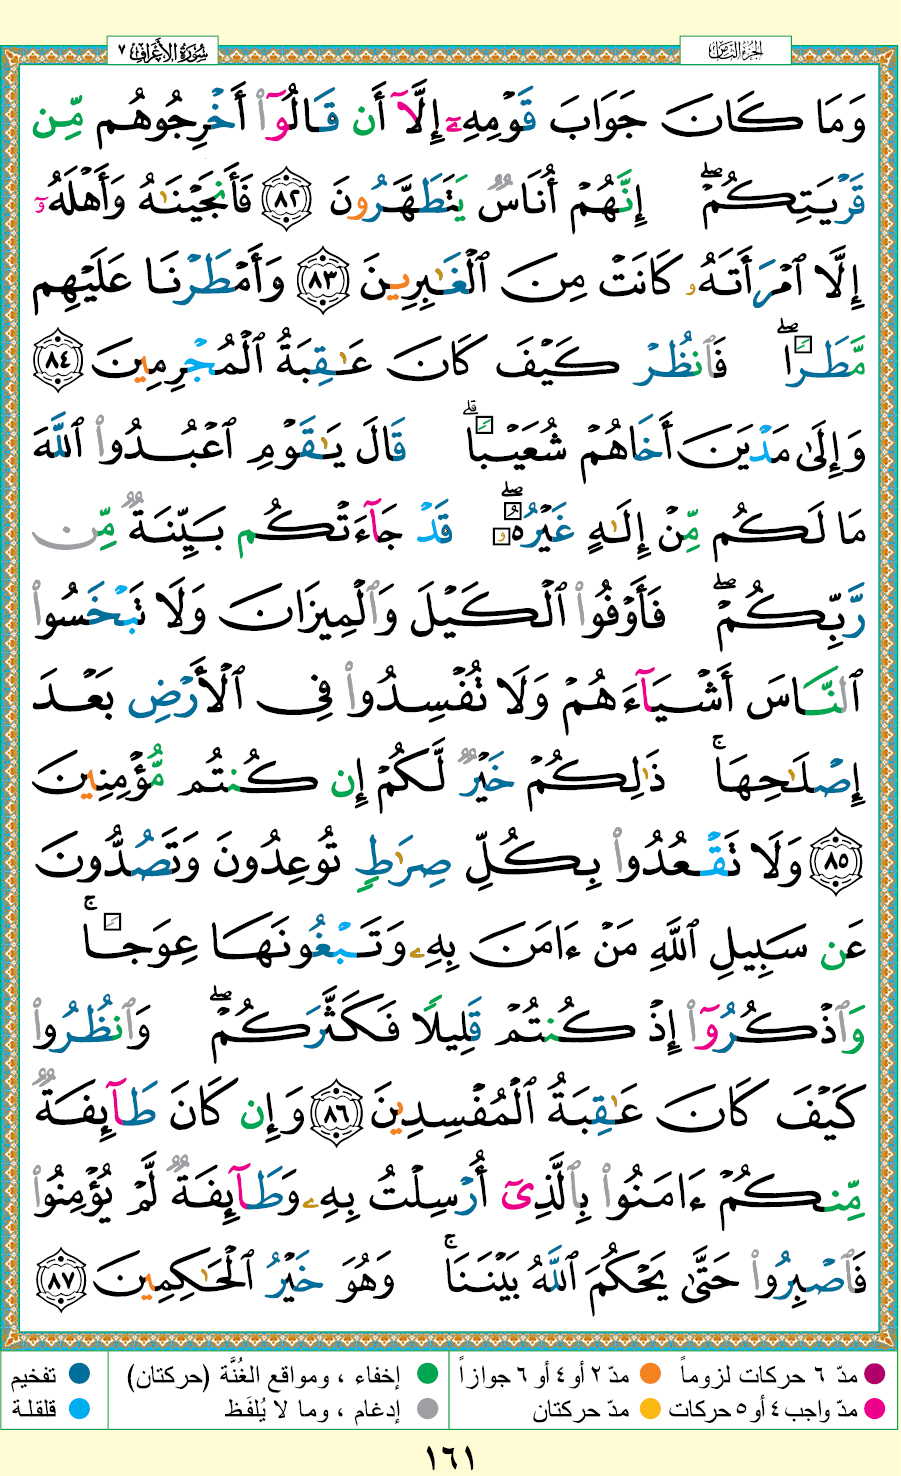 سُورَةُ الأَعْرَاف ٧
الجزء الثامن
وَمَا كَانَ جَوَابَ قَوْمِهِۦٓ إِلَّآ أَن قَالُوٓا۟ أَخْرِجُوهُم مِّن
قَرْيَتِكُمْ ۖ إِنَّهُمْ أُنَاسٌ يَتَطَهَّرُونَ ٨٢ فَأَنجَيْنَـٰهُ وَأَهْلَهُۥٓ
إِلَّا ٱمْرَأَتَهُۥ كَانَتْ مِنَ ٱلْغَـٰبِرِينَ ٨٣ وَأَمْطَرْنَا عَلَيْهِم
مَّطَرًا ۖ فَٱنظُرْ كَيْفَ كَانَ عَـٰقِبَةُ ٱلْمُجْرِمِينَ ٨٤
وَإِلَىٰ مَدْيَنَ أَخَاهُمْ شُعَيْبًا ۗ قَالَ يَـٰقَوْمِ ٱعْبُدُوا۟ ٱللَّهَ
مَا لَكُم مِّنْ إِلَـٰهٍ غَيْرُهُۥ ۖ قَدْ جَآءَتْكُم بَيِّنَةٌ مِّن
رَّبِّكُمْ ۖ فَأَوْفُوا۟ ٱلْكَيْلَ وَٱلْمِيزَانَ وَلَا تَبْخَسُوا۟
ٱلنَّاسَ أَشْيَآءَهُمْ وَلَا تُفْسِدُوا۟ فِى ٱلْأَرْضِ بَعْدَ
إِصْلَـٰحِهَا ۚ ذَٰلِكُمْ خَيْرٌ لَّكُمْ إِن كُنتُم مُّؤْمِنِينَ
٨٥ وَلَا تَقْعُدُوا۟ بِكُلِّ صِرَٰطٍ تُوعِدُونَ وَتَصُدُّونَ
عَن سَبِيلِ ٱللَّهِ مَنْ ءَامَنَ بِهِۦ وَتَبْغُونَهَا عِوَجًا ۚ
وَٱذْكُرُوٓا۟ إِذْ كُنتُمْ قَلِيلًا فَكَثَّرَكُمْ ۖ وَٱنظُرُوا۟
كَيْفَ كَانَ عَـٰقِبَةُ ٱلْمُفْسِدِينَ ٨٦ وَإِن كَانَ طَآئِفَةٌ
مِّنكُمْ ءَامَنُوا۟ بِٱلَّذِىٓ أُرْسِلْتُ بِهِۦ وَطَآئِفَةٌ لَّمْ يُؤْمِنُوا۟
فَٱصْبِرُوا۟ حَتَّىٰ يَحْكُمَ ٱللَّهُ بَيْنَنَا ۚ وَهُوَ خَيْرُ ٱلْحَـٰكِمِينَ ٨٧
مدّ ٦ حركات لزوماً مدّ ٢ أو ٤ أو ٦ جوازاً إخفاء ، ومواقع الغُنَّة (حركتان) تفخيم
مدّ واجب ٤ أو ٥ حركات مدّ حركتان إدغام ، وما لا يُلفَظ قلقلة
١٦١